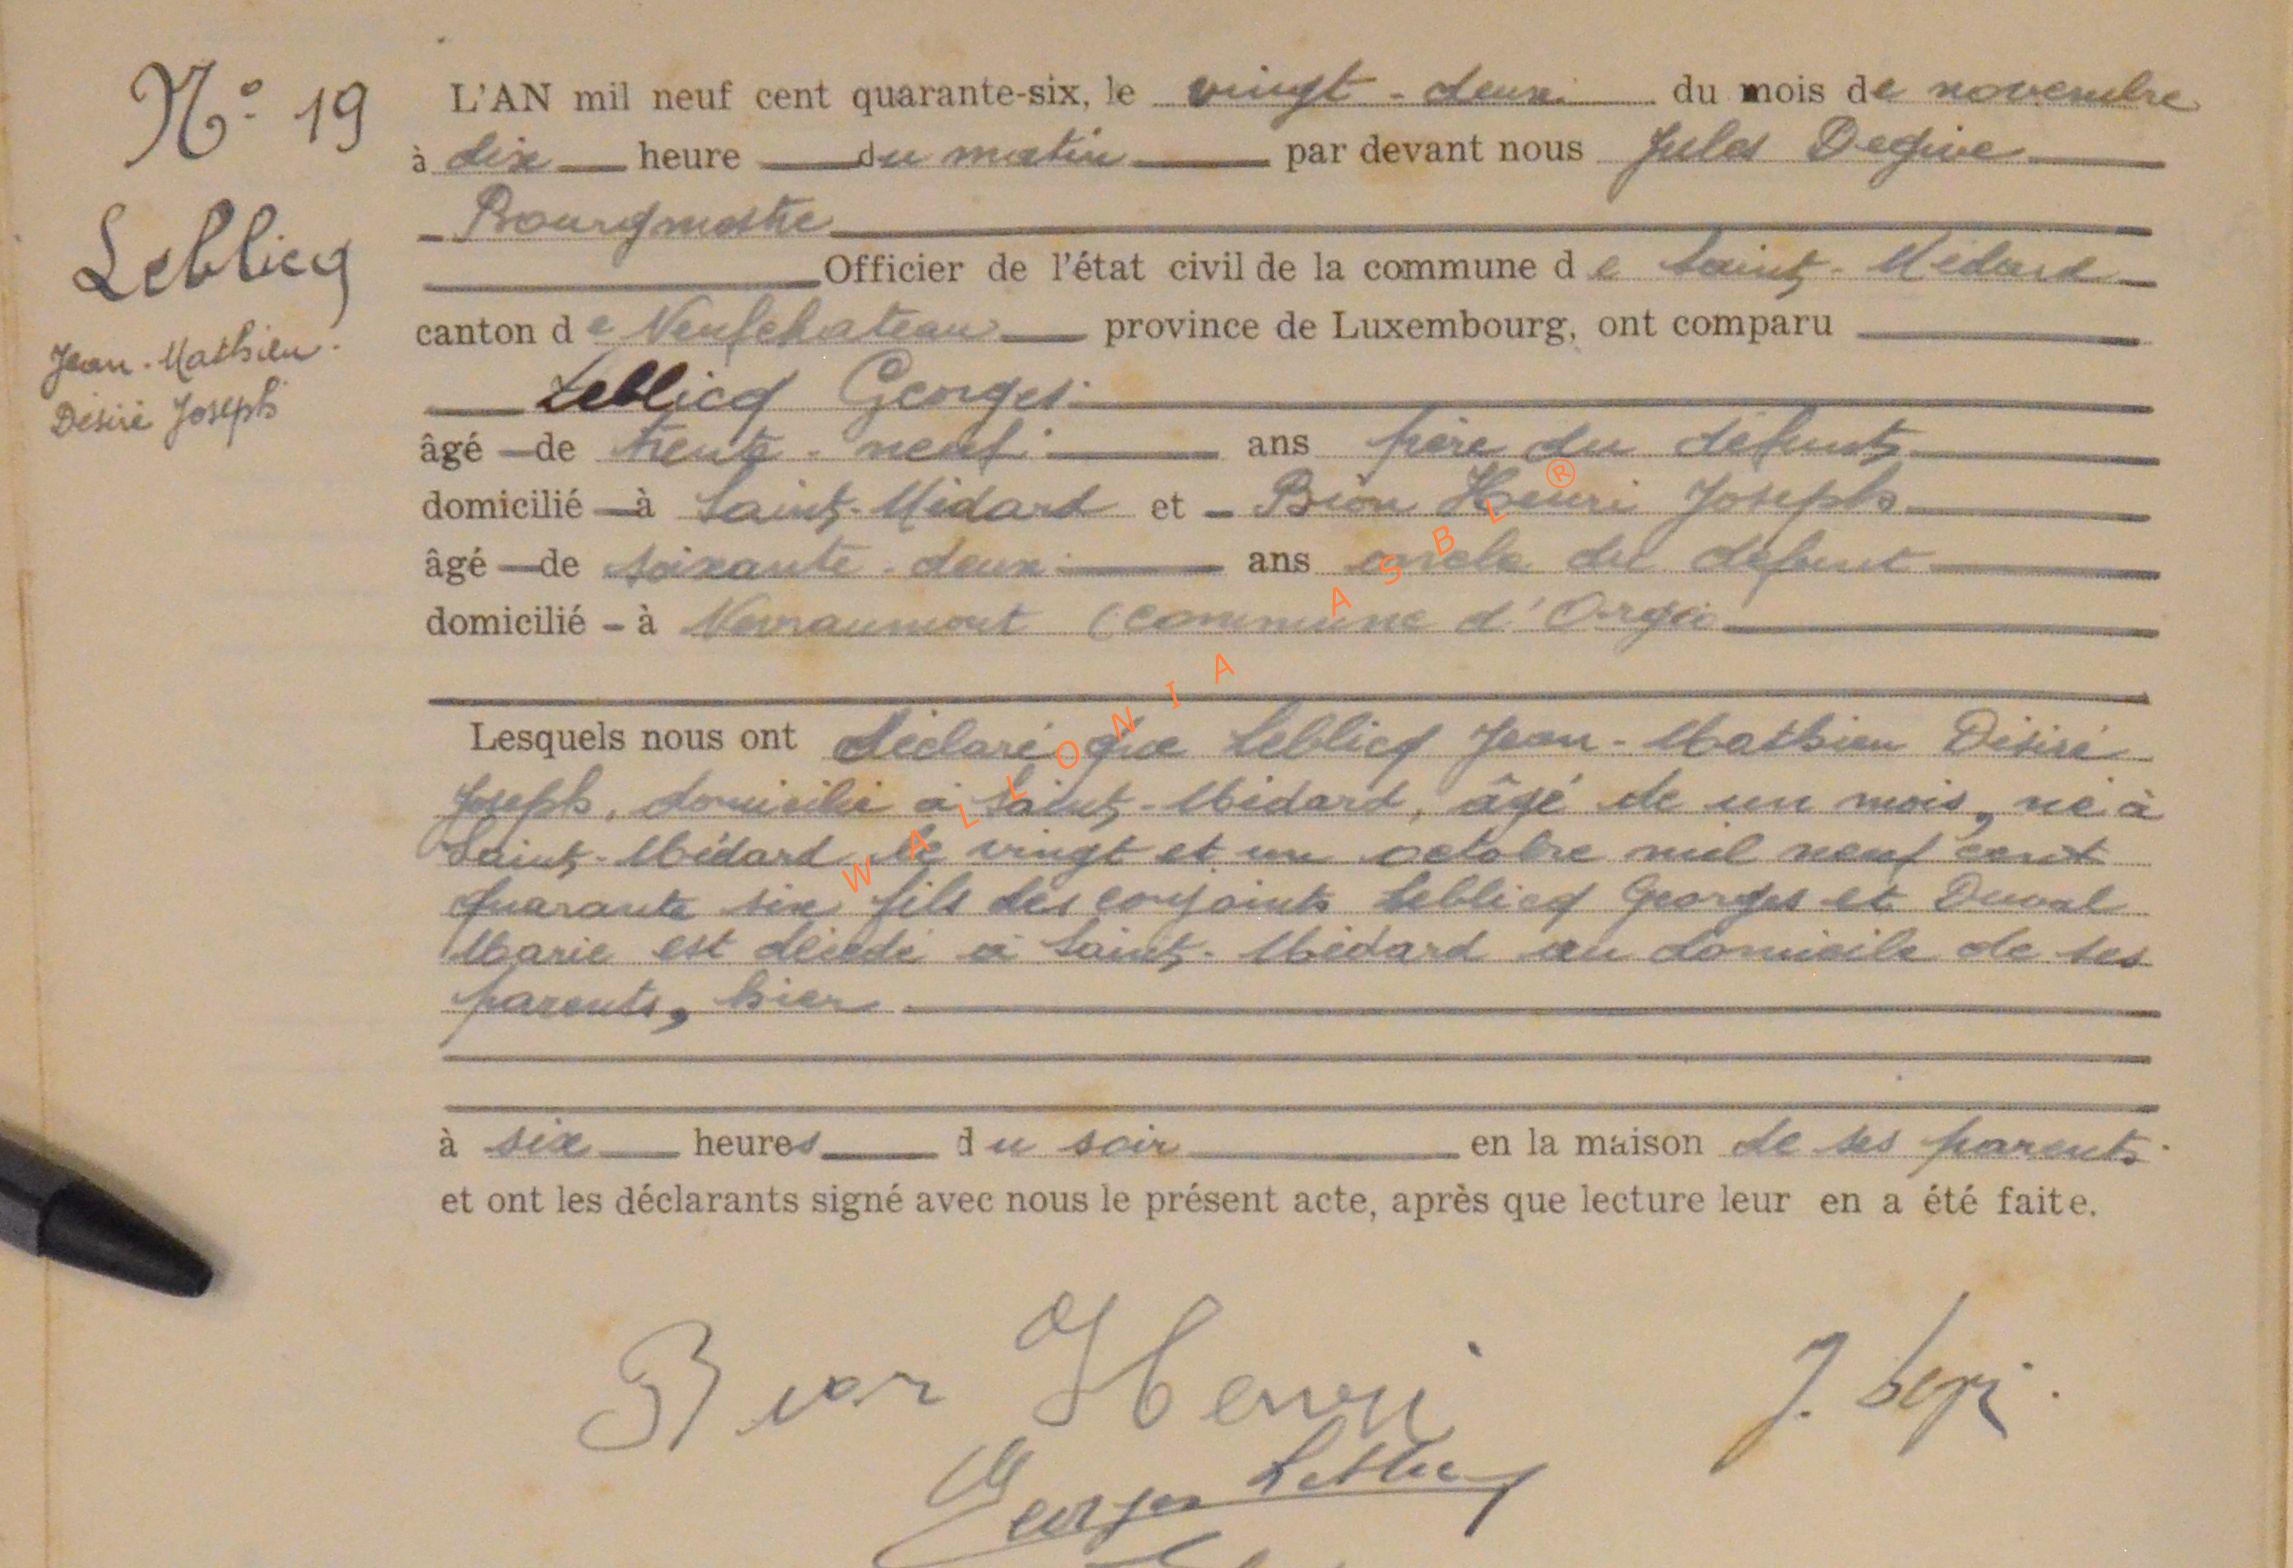 N° 19
Leblicq
Jean-Mathieu
Désiré Joseph
L'AN mil neuf cent quarante-six, le vingt-deux du mois de novembre
à dix heure du matin par devant nous Jules Degive
Bourgmestre
Officier de l'état civil de la commune de Saint-Médard
canton de Neufchateau province de Luxembourg, ont comparu
Leblicq Georges
âgé de trente-neuf ans frère du défunt
domicilié à Saint-Médard et Bion Henri Joseph
âgé de soixante-deux ans oncle du défunt
domicilié à Nevraumont (commune d'Orgeo
Lesquels nous ont déclaré que Leblicq Jean-Mathieu Désiré
Joseph, domicilié à Saint-Médard, âgé de un mois, né à
Saint-Médard le vingt et un octobre mil neuf cent
quarante six fils des conjoints Leblicq Georges et Duval
Marie est décédé à Saint-Médard au domicile de ses
parents, hier
à six heures du soir en la maison de ses parents
et ont les déclarants signé avec nous le présent acte, après que lecture leur en a été faite.
Bion Henri
Georges Leblicq
WALLONIA ASBL ®